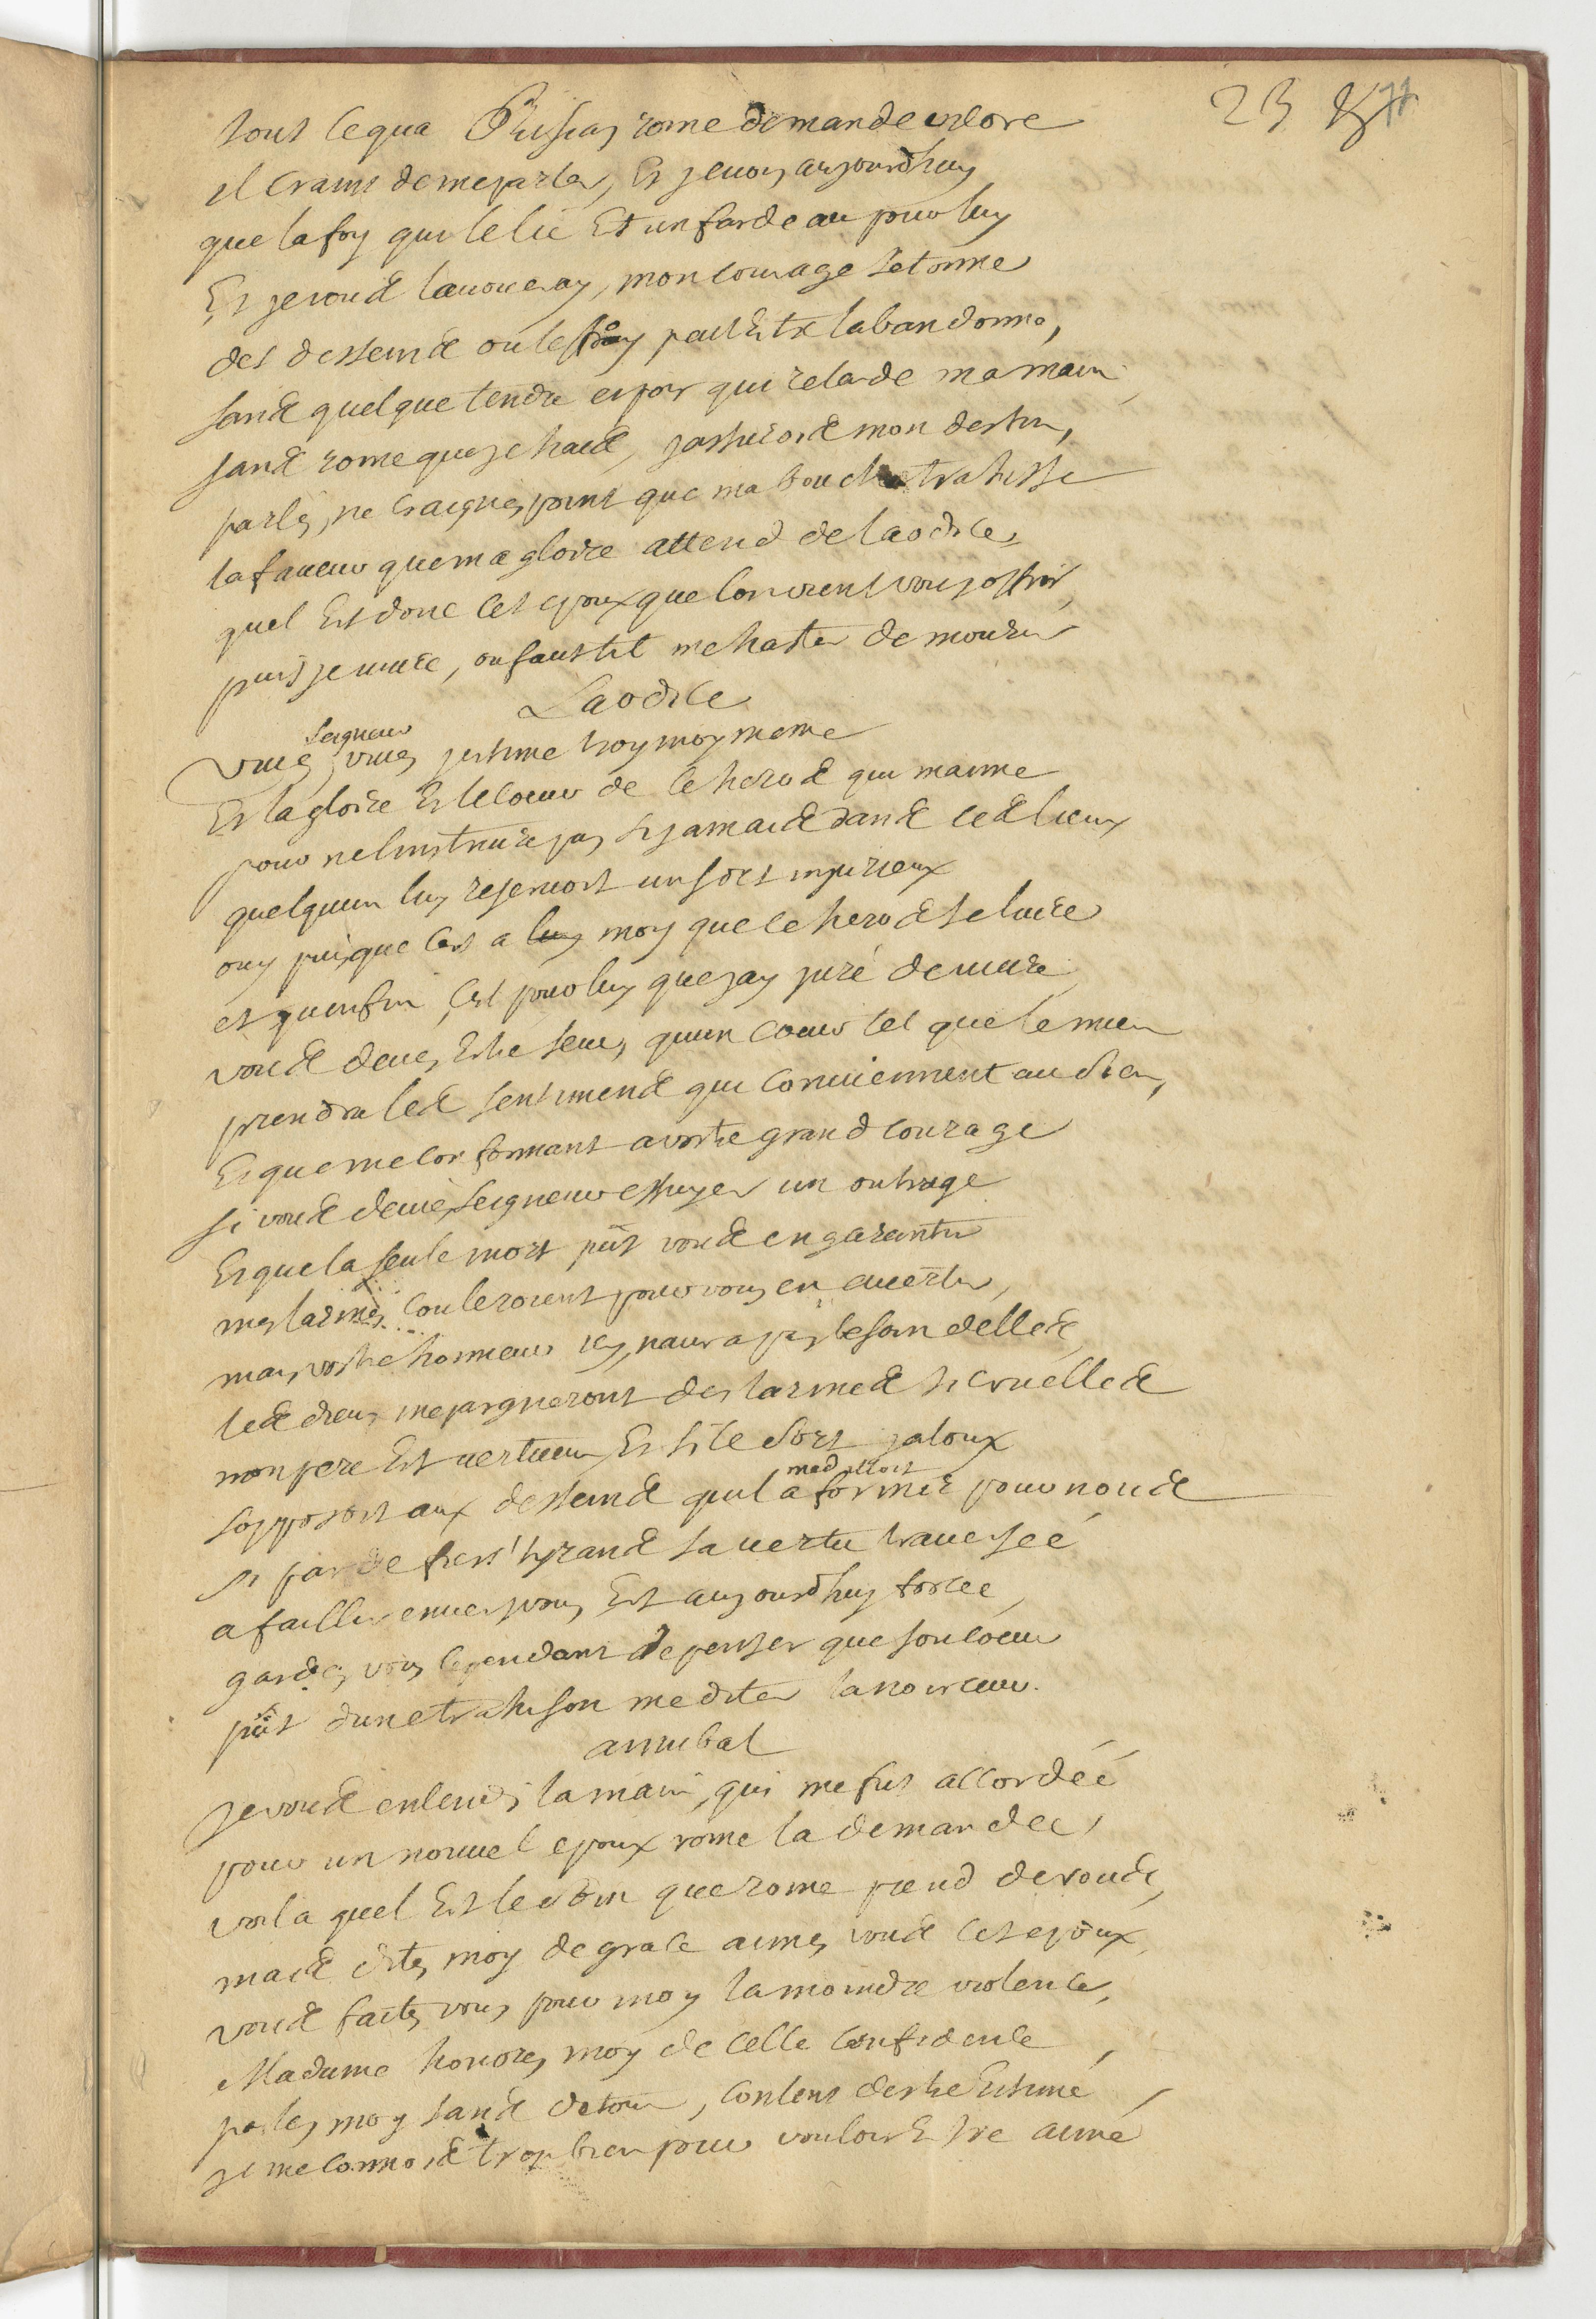 23
tout ce qua Prusias rome demande encore
il craint de me parler, et je voy aujourdhuy
que la foy qui le lie Est un fardeau pour luy
Et je vous lavoueray, mon courage setonne
des desseins ou le foy peut Estre labandonne,
sans quelque tendre espoir qui retarde ma main,
sans rome que je hais, jassurois mon destin,
parlés, ne craignés point que ma bouche trahisse
la faveur que ma gloire attend de laodice,
quel Est donc cet epoux que lon vient vous offrir,
puis je vivre, ou faut il me haster de mourir
Laodice
seigneur
vivés, vivés jestime trop moy meme
Et la gloire Et le coeur de ce heros qui maime
pour ne linstruire pas si jamais dans ces lieux
quelquun luy reservoit un sort injurieux
ouy puisque cest a moy que ce heros se livre
et quenfin cest pour luy que jay juré de vivre
vous devés Estre seur, quun coeur tel que le mien
prendra les sentimens qui conviennent au sien,
Et que me conformant a vostre grand courage
si vous deviés, seigneur essuyer un outrage
Et que la seule mort pût vous en garantir
mes larmes couleroient pour vous en avertir,
mais vostre honneur icy naura pas besoin delles,
les dieux mepargneront des larmes si cruelles
mon pere Est vertueux Et si le sort jaloux
sopposoit aux desseins quil a formés pour nous
meditoit
si par de fiers tyrans sa vertu traversée
a faillir envers vous Est aujourdhuy forcée
gardés vous cependant de penser que son coeur
pût dune trahison mediter la noirceur.
annibal
je vous entends, la main, qui me fut accordée
pour un nouvel epoux rome la demandée,
voila quel Est le soin que rome prend de vous,
mais dites moy de grace aimés vous cet epoux,
vous faites vous pour moy la moindre violence,
Madame honorés moy de cette confidence,
parlés moy sans detour, content destre Estimé,
je me connois trop bien pour vouloir Estre aimé